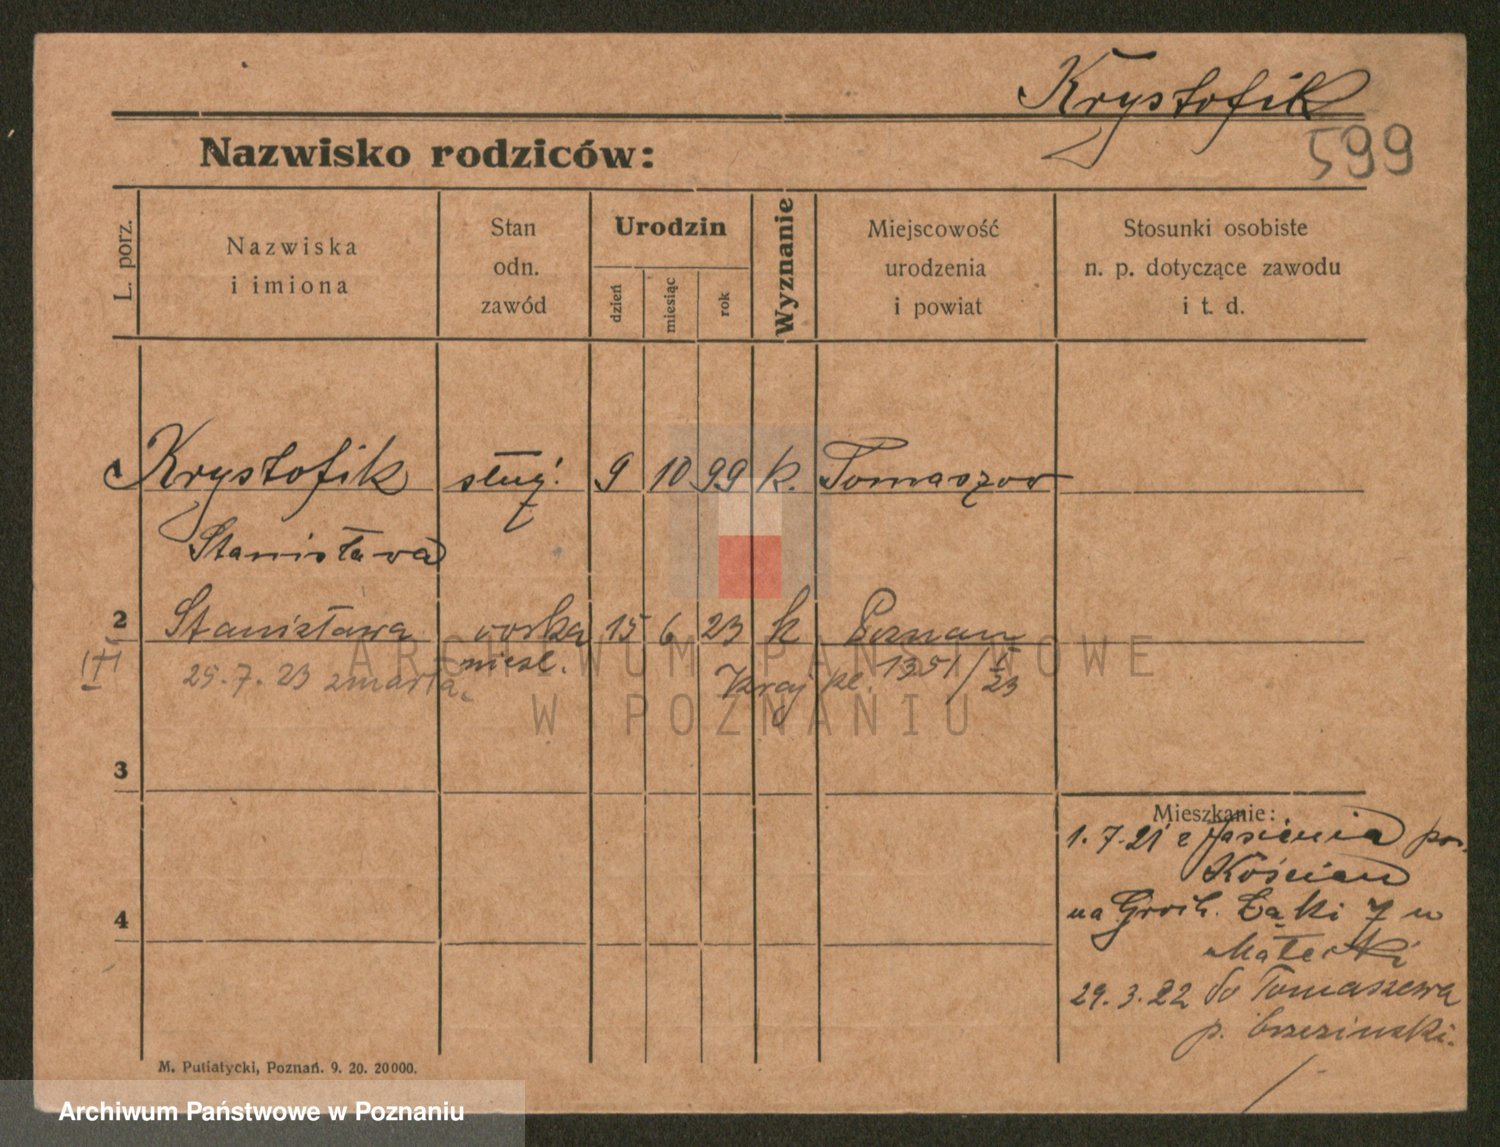 Krystofik
599
Nazwisko rodziców:
L. porz.
Nazwiska
i imiona
Stan
odn.
zawód
Urodzin
dzień
miesiąc
rok
Wyznanie
Miejscowość
urodzenia
i powiat
Stosunki osobiste
n. p. dotyczące zawodu
i t. d.
Krystofik służ. 9 10 99 k. Tomaszow
Stanisława
2 Stanisława córka 15 6 23 k Poznan
nieśl.
25.7.23 zmarła. 1351/
ARCHIWUM PAŃSTWOWE
W POZNANIU
3
4
Mieszkanie:
1.7.21 z Jasienia pow.
Kościan
na Grob. Łąki 7 u
Małecki
29.3.22 do Tomaszewa
p. brzezinski.
M. Putiatycki, Poznań. 9. 20. 20000.
Archiwum Państwowe w Poznaniu